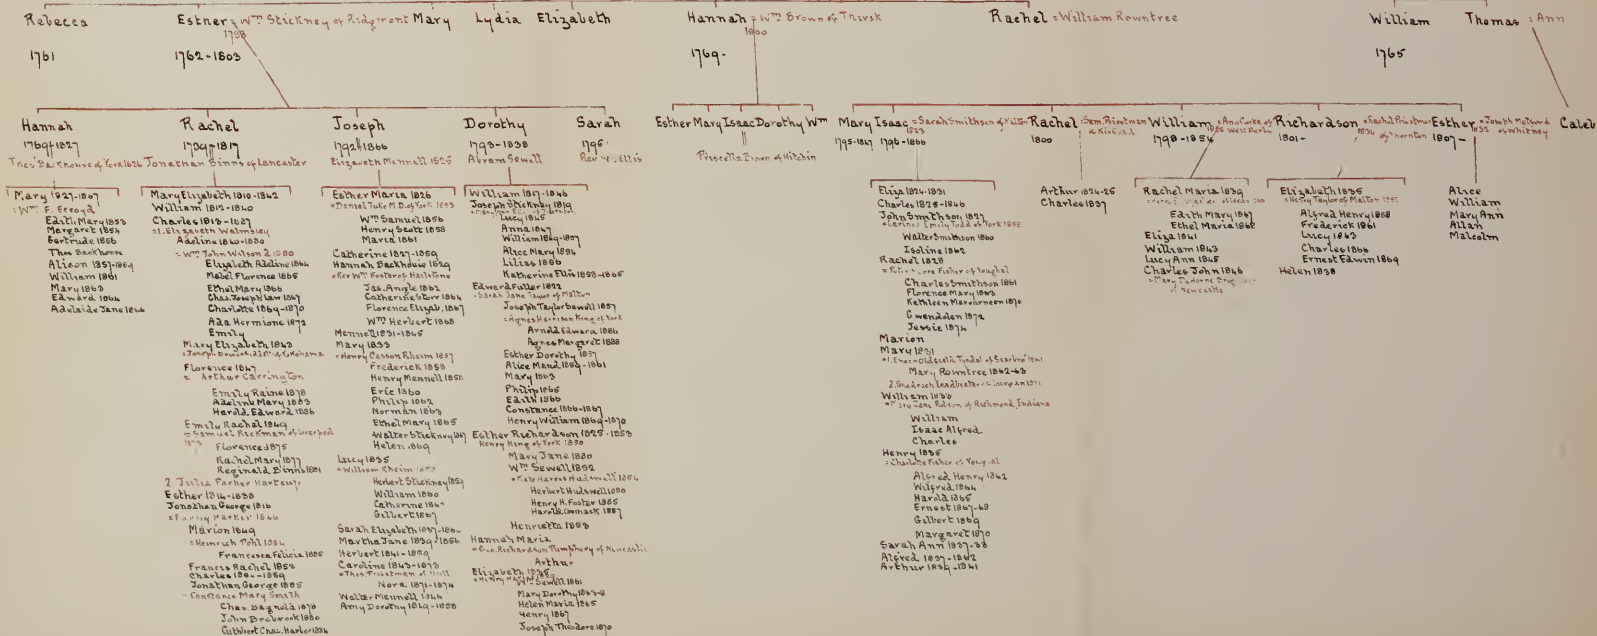 Rebecca
1761
Esther = Wm Stickney of Ridgmont
1788
1762-1803
Mary
Lydia
Elizabeth
Hannah = Wm Brown of Thirsk
1800
1769-
Rachel = William Rowntree
William
1765
Thomas = Ann
Hannah
Rachel
Joseph
1792-1866
Elizabeth Mennell 1825
Dorothy
1793-1838
Avram Sewell
Sarah
1795
Ellis
Jonathan Binns of Lancaster
Esther Mary Isaac Dorothy Wm
Priscilla Brown of Hitchin
Mary
1795-1817
Isaac = Sarah Smithson of
1823
1796-1866
Rachel = Sam. Priestman
1800
William
1798-1854
Richardson = Rachel Priestman
of Thornton
1801-
Esther = Joseph
1832 of Whitney
1807-
Caleb
Mary 1827-1907
= Wm F. Ecroyd
Edith Mary 1853
Margaret 1854
Gertrude 1856
Thos Backhouse
Alison 1857-1864
William 1861
Mary 1863
Edward 1864
Adelaide Jane 1866
Mary Elizabeth 1810-1842
William 1812-1840
Charles 1813-1887
=1. Elizabeth Walmsley
Adeline 1840-1880
= Wm John Watson 1880
Elizabeth Adeline 1864
Mabel Florence 1865
Ethel Mary 1866
Chas. Joseph Law 1867
Charlotte 1869-1870
Ada Hermione 1872
Emily
Mary Elizabeth 1843
Florence 1847
= Arthur Carrington
Emily Raine 1878
Adeline Mary 1883
Harold Edward 1886
Emily Rachel 1849
= Samuel Rickman of Liverpool
Florence 1875
Rachel Mary 1877
Reginald Binns 1881
2 Julia Parker
Esther 1814-1838
Jonathan George 1816
= Fanny Harker 1846
Marion 1849
= Heinrich Pohl 1884
Francesca Felicia 1885
Francis Rachel 1852
Charles 1854-1859
Jonathan George 1855
= Constance Mary Smith
Chas. Bagnold 1878
John Brebrook 1880
Cuthbert Chas. Harker 1884
Esther Maria 1826
= Daniel Tuke M.D. of York 1853
Wm Samuel 1856
Henry Scott 1858
Maria 1861
Catherine 1827-1859
Hannah Backhouse 1829
= Rev Wm Foster of
Jas. Angle 1862
Catherine Storr 1864
Florence Elizab. 1867
Wm Herbert 1868
Mennell 1831-1845
Mary 1833
= Henry Casson Rheim 1857
Frederick 1858
Henry Mennell
Eric 1860
Philip 1862
Norman 1863
Ethel Mary 1865
Walter Stickney 1867
Helen 1869
Lucy 1835
= William Rheim
Herbert Stickney 1859
William 1860
Catherine
Gilbert 1867
Sarah Elizabeth 1837-
Martha Jane 1839-1856
Herbert 1841-1859
Caroline 1843-1873
= Thos. Priestman of Hull
Nora 1871-1874
Walter Mennell 1846
Amy Dorothy 1849-1858
William 1817-1846
Joseph Stickney 1819
Lucy 1845
Anna 1847
William 1849-1857
Alice Mary 1854
Lilias 1856
Katherine Ellis 1858-1865
Edward Fuller 1822
= Sarah Jane Taylor of Malton
Joseph Taylor Sewell 1857
= Agnes Harrison King of York
Arnold Edward 1886
Agnes Margaret 1888
Esther Dorothy 1857
Alice Maud 1859-1861
Mary 1863
Philip 1865
Edith 1866
Constance 1866-1867
Henry William 1869-1870
Esther Richardson 1825-1858
Henry King of York 1850
Mary Jane 1880
Wm Sewell 1852
= Kate Haress Hudswell 1884
Herbert Hudswell 1880
Henry H. Foster 1885
Harold Cormack 1887
Henrietta 1853
Hannah Maria
= Geo. Richardson Pumphrey of Newcastle
Arthur
Elizabeth
Wm Sewell 1861
Mary Dorothy
Helen Maria 1865
Henry 1867
Joseph Theodore 1870
Eliza 1824-1831
Charles 1826-1846
John Smithson 1827
= Emily Todd of York 1858
Walter Smithson 1860
Isoline 1862
Rachel 1828
= Fisher of Youghal
Charles Smithson 1861
Florence Mary 1863
Kathleen Mavourneen 1870
Gwendolen 1872
Jessie 1874
Marion
Mary 1831
Tyndal of Scarbro' 1861
Mary Rowntree 1862-63
William 1833
= Mary Jane Rdson of Richmond, Indiana
William
Isaac Alfred
Charles
Henry 1835
= Charlotte Fisher of Youghal
Alfred Henry 1862
Wilfred 1864
Harold 1865
Ernest 1867-68
Gilbert 1869
Margaret 1870
Sarah Ann 1837-38
Alfred 1837-1862
Arthur 1839-1841
Arthur 1824-25
Charles 1837
Rachel Maria 1839
Edith Mary 1867
Ethel Maria 1868
Eliza 1841
William 1843
Lucy Ann 1845
Charles John 1846
of Newcastle
Elizabeth 1835
= Henry Taylor of Malton
Alfred Henry 1858
Frederick 1861
Lucy 1863
Charles 1866
Ernest Edwin 1869
Helen 1838
Alice
William
Mary Ann
Allan
Malcolm